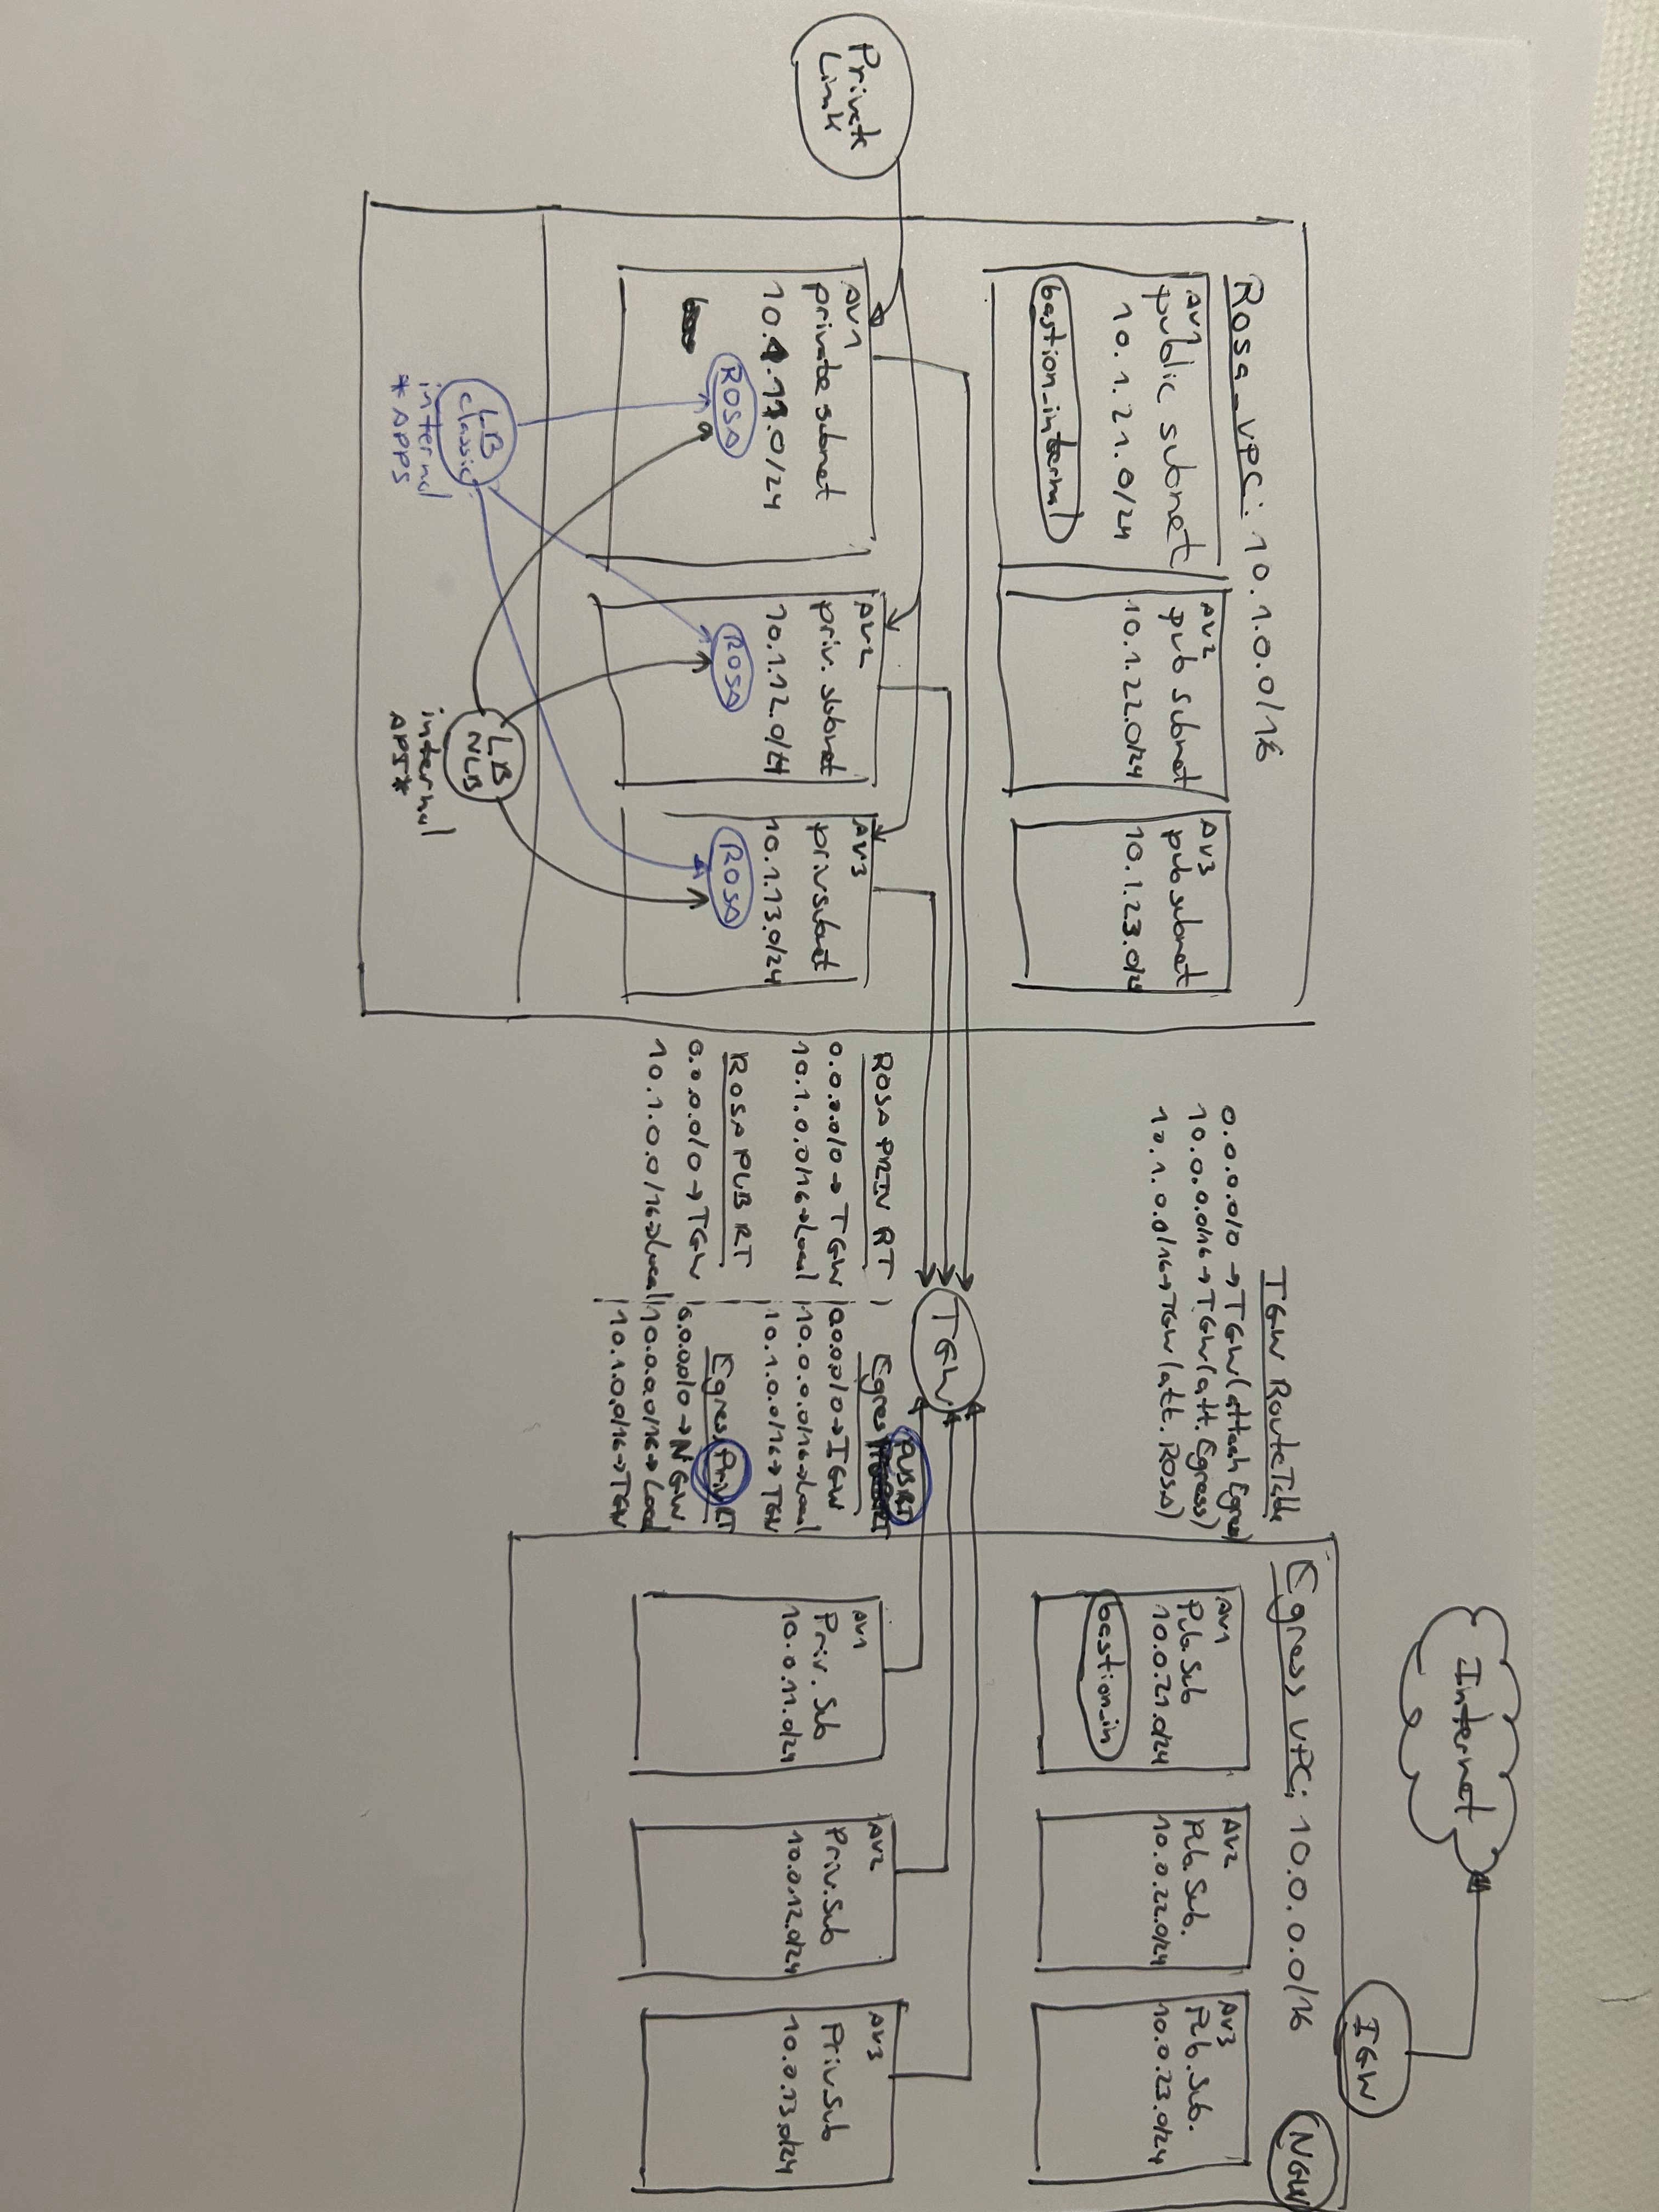 Private
Link
Rosa_VPC: 10.1.0.0/16
AV1
public subnet
10.1.21.0/24
bastion_internal
AV2
pub subnet
10.1.22.0/24
AV3
pub subnet
10.1.23.0/24
AV1
private subnet
10.1.11.0/24
ROSA
AV2
priv. subnet
10.1.12.0/24
ROSA
AV3
priv subnet
10.1.13.0/24
ROSA
LB
classic
internal
*APPS
LB
NLB
internal
API*
TGW Route Table
0.0.0.0/0 → TGW (attach Egress)
10.0.0.0/16 → TGW (att. Egress)
10.1.0.0/16 → TGW (att. ROSA)
TGW
ROSA PRIV RT
0.0.0.0/0 → TGW
10.1.0.0/16 → Local
ROSA PUB RT
0.0.0.0/0 → TGW
10.1.0.0/16 → Local
Egress PUB RT
0.0.0.0/0 → IGW
10.0.0.0/16 → Local
10.1.0.0/16 → TGW
Egress Priv RT
0.0.0.0/0 → NGW
10.0.0.0/16 → Local
10.1.0.0/16 → TGW
Internet
IGW
NGW
Egress VPC: 10.0.0.0/16
AV1
Pub. Sub
10.0.21.0/24
bastion_in
AV2
Pub. Sub.
10.0.22.0/24
AV3
Pub. Sub.
10.0.23.0/24
AV1
Priv. Sub
10.0.11.0/24
AV2
Priv. Sub
10.0.12.0/24
AV3
Priv. Sub
10.0.13.0/24